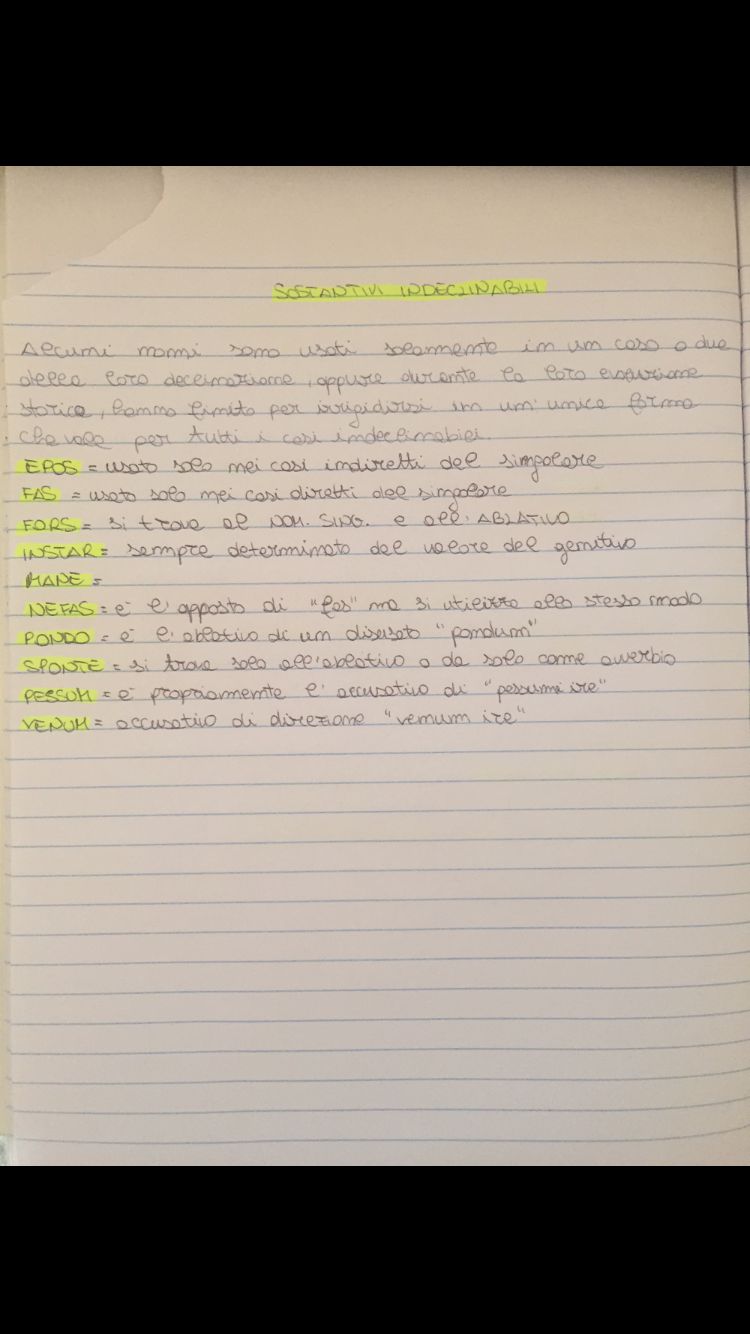 SOSTANTIVI INDECLINABILI
Alcuni nomi sono usati solamente in un caso o due
della loro declinazione, oppure durante la loro evoluzione
storica, hanno finito per irrigidirsi in un'unica forma
che vale per tutti i casi indeclinabili.
EPOS = usato solo nei casi indiretti del singolare
FAS = usato solo nei casi diretti del singolare
FORS = si trova al NOM. SING. e all'ABLATIVO
INSTAR = sempre determinato dal valore del genitivo
MANE =
NEFAS = è l'opposto di "fas" ma si utilizza allo stesso modo
PONDO = è l'ablativo di un disusato "pondum"
SPONTE = si trova solo all'ablativo o da solo come avverbio
PESSUM = è propriamente l'accusativo di "pessum ire"
VENUM = accusativo di direzione "venum ire"